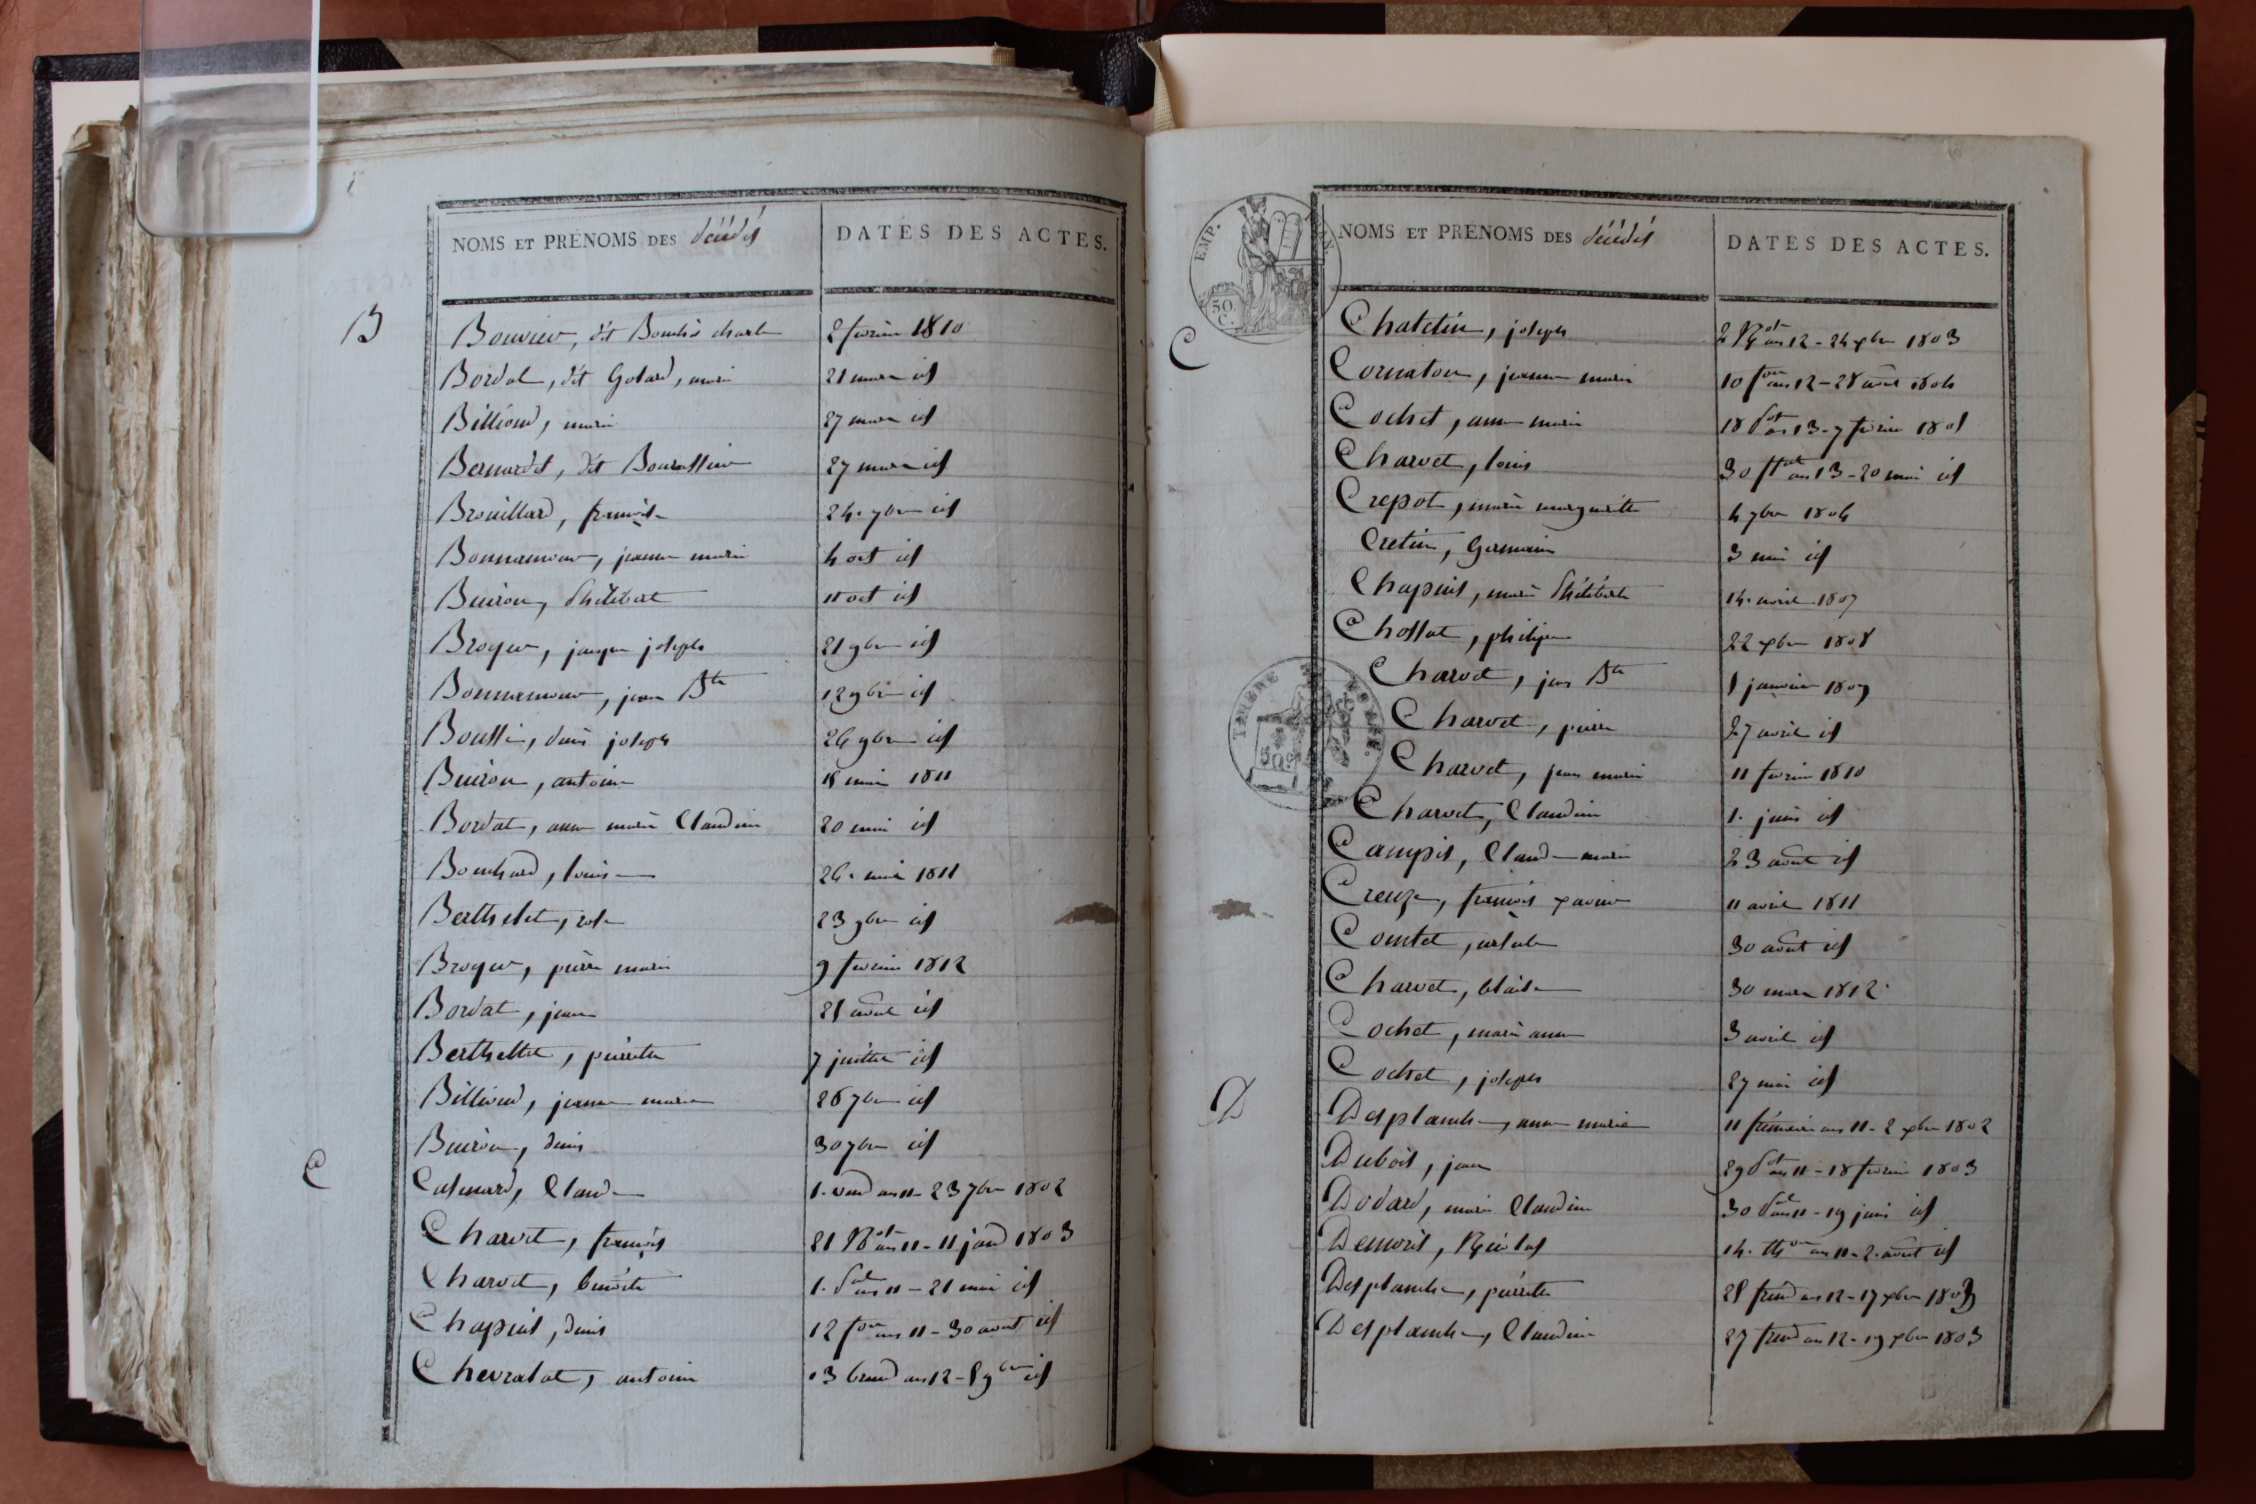 NOMS ET PRÉNOMS DES décédés
DATES DES ACTES.
B
Bouvier, dit Bouchié charle 2 février 1810
Bordat, dit Golard, marie 21 mars id
Billioud, marie 27 mars id
Bernardet, dit Bourassier 27 mars id
Brouillard, françoise 24. 7bre id
Bonnamour, jeanne marie 4 oct id
Buiron, Philibert 11 oct id
Broyer, jacque joseph 21 9bre id
Bonnamour, jean Bte 12 9bre id
Boussi, denis joseph 24 9bre id
Buiron, antoine 18 mai 1811
Bordat, anne marie Claudine 20 mai id
Bouchard, louis 26. mai 1811
Berthelet, rose 23 9bre id
Broyer, pierre marie 9 février 1812
Bordat, jean 21 août id
Berthellet, pierrette 7 juillet id
Billioud, jeanne marie 26 7bre id
Buiron, denis 30 7bre id
C
Casmard, Claude 1. vend an 11 - 23 7bre 1802
Charvet, françois 21 Not an 11 - 11 janv 1803
Charvet, benoite 1. Pal an 11 - 21 mai id
Chapuis, denis 12 for an 11 - 30 aout id
Chevralat, antoine 13 brum an 12 - 5 9bre id
NOMS ET PRÉNOMS DES décédés
DATES DES ACTES.
EMP.
50 C.
C
Chatelin, joseph 2 Not an 12 - 24 xbre 1803
Cornaton, jeanne marie 10 for an 12 - 28 août 1804
Cochet, anne marie 18 Pot an 13 - 7 février 1805
Charvet, louis 30 flal an 13 - 20 mai id
Crepot, marie marguerite 4 7bre 1806
Cretin, Germain 3 mai id
Chapuis, marie Philiberte 14. avril 1807
Chossat, philippe 22 xbre 1808
TIMBRE
Charvet, jean Bte 1 janvier 1809
Charvet, pierre 27 avril id
Charvet, jean marie 11 février 1810
Charvet, Claudine 1. juin id
Campis, Claude marie 23 août id
Creuze, françois xavier 11 avril 1811
Comtet, ursule 30 août id
Charvet, blaise 30 mars 1812
Cochet, marie anne 3 avril id
Cochet, joseph 27 mai id
D
Desplanche, anne marie 11 frimaire an 11 - 2 xbre 1802
Dubois, jean 29 Pot an 11 - 18 février 1803
Dodard, marie Claudine 30 Pal an 11 - 19 juin id
Demoris, Nicolas 14. thor an 11 - 2. août id
Desplanche, pierrette 25 frim an 12 - 17 xbre 1803
Desplanche, Claudine 27 frim an 12 - 19 xbre 1803